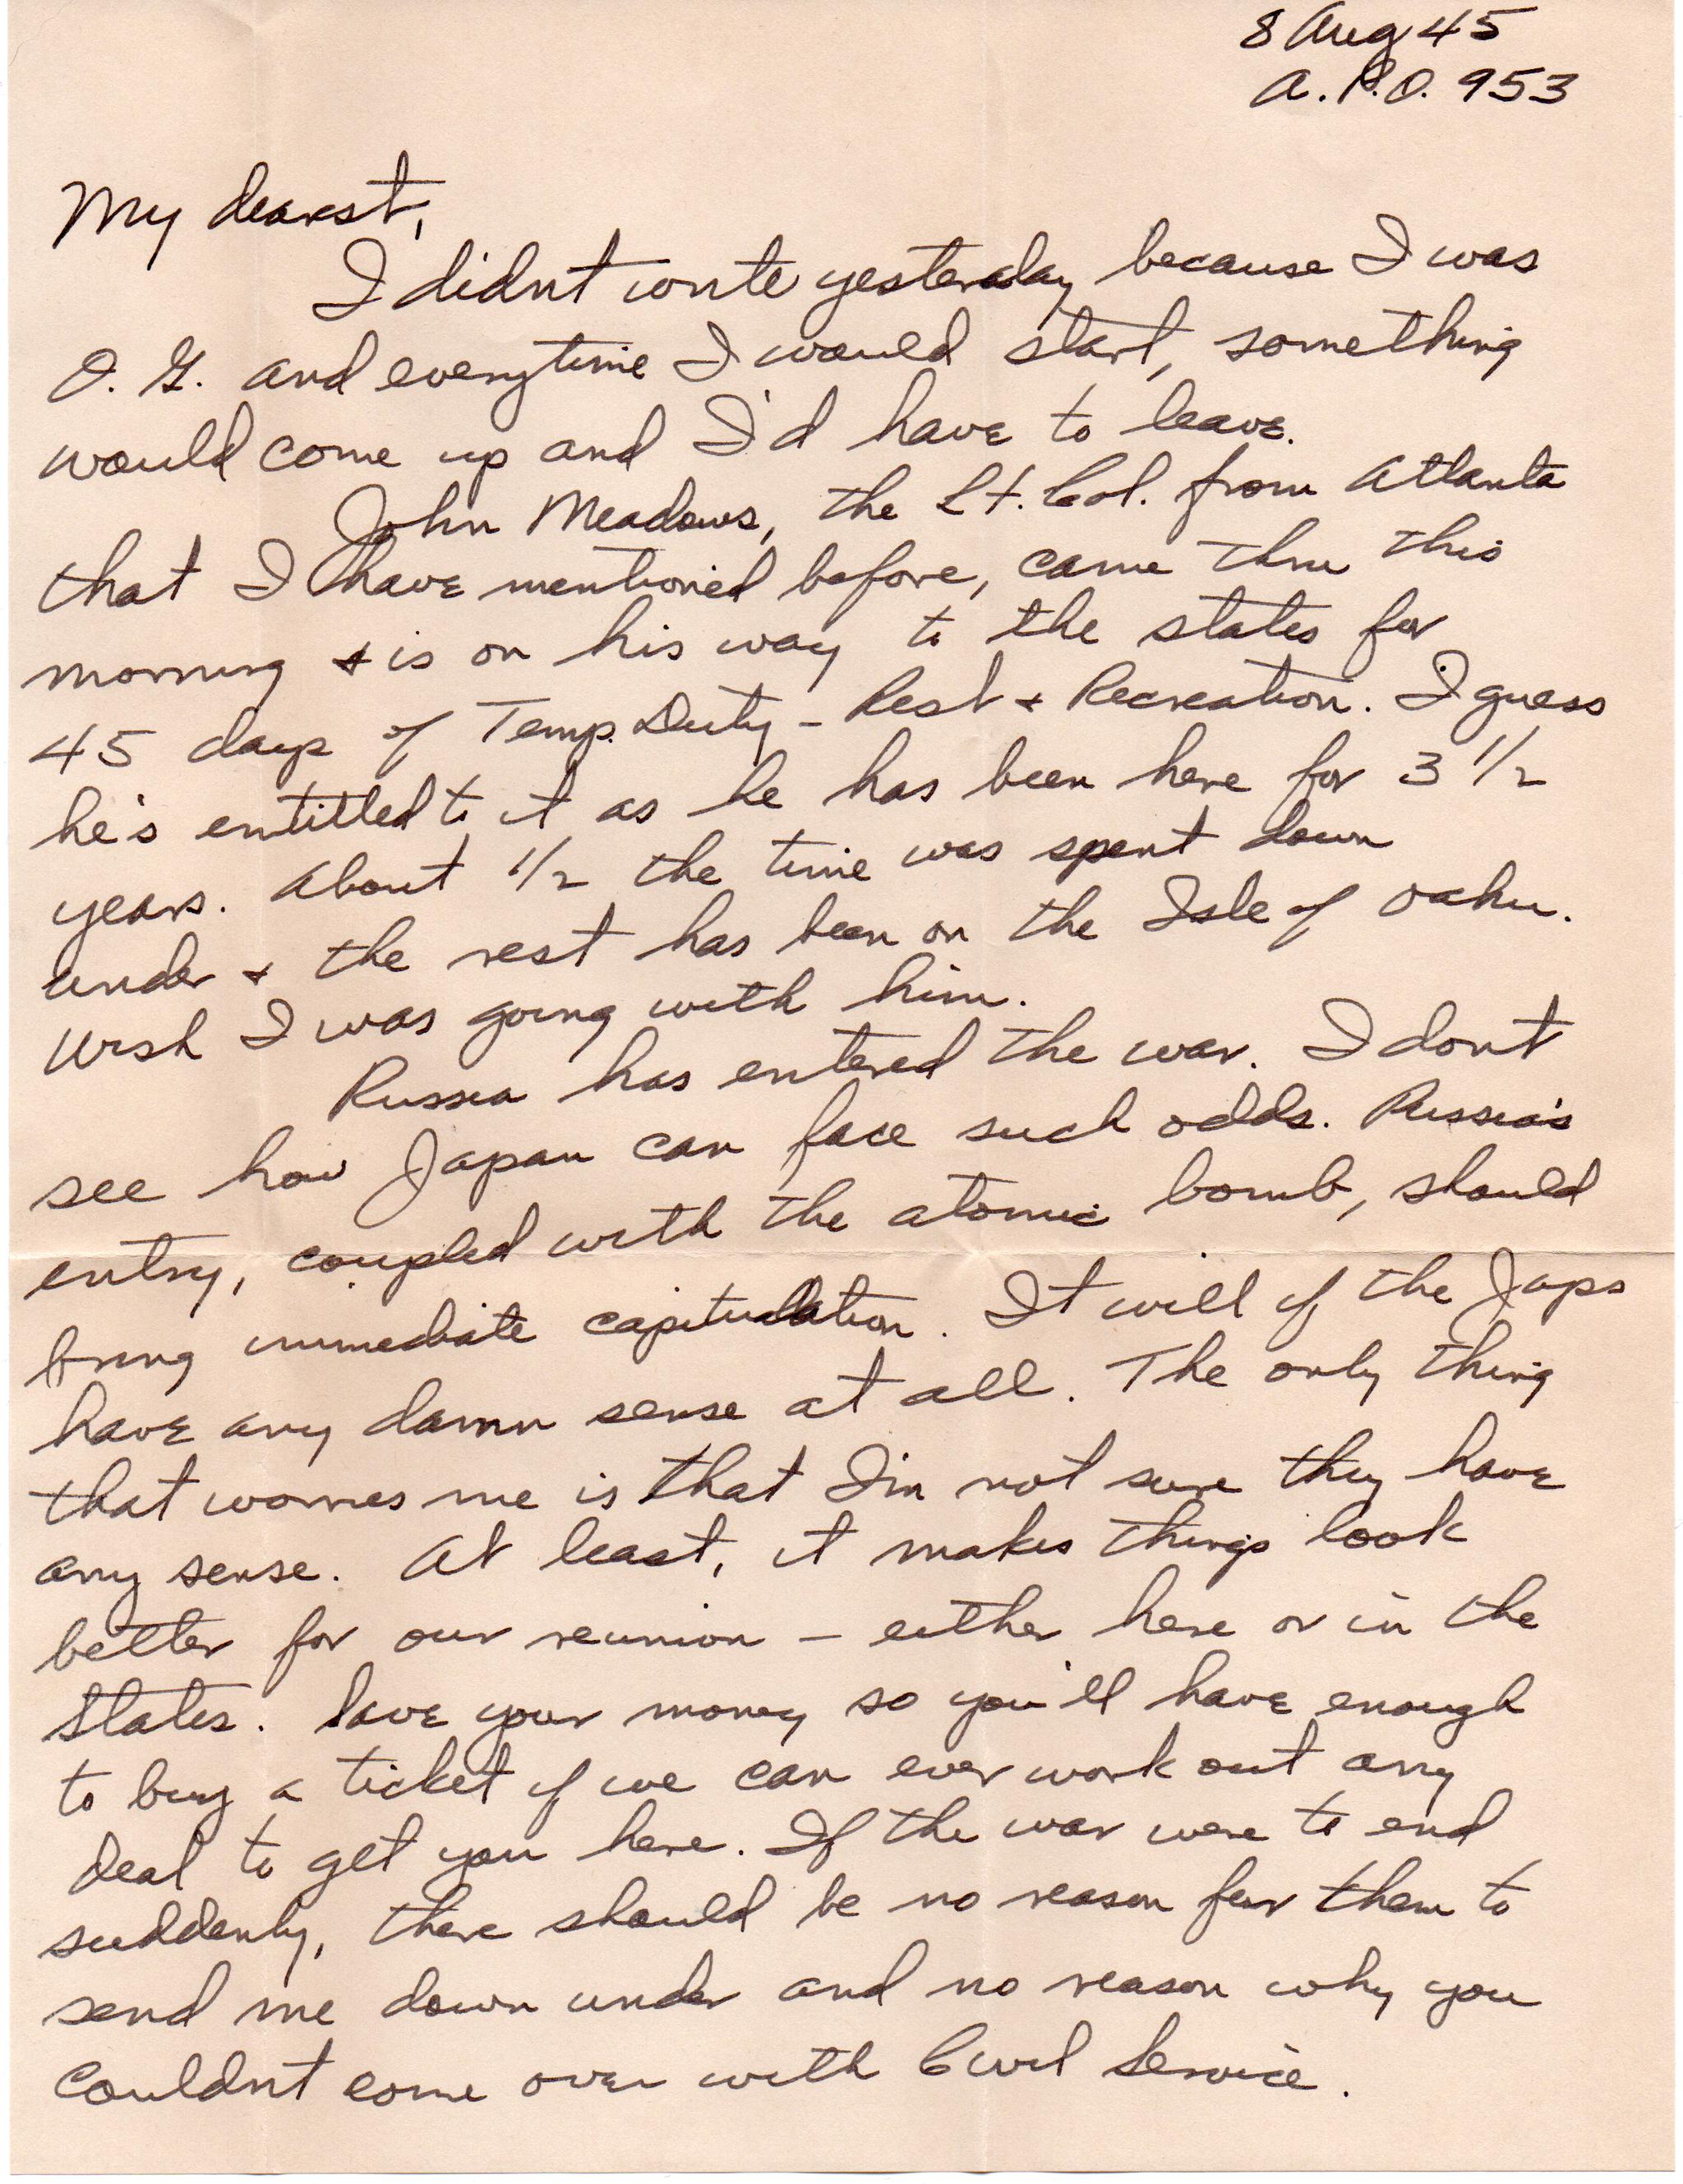 8 Aug 45
A.P.O. 953
My dearest,
I didnt write yesterday because I was
O. G. and everytime I would start, something
would come up and I'd have to leave.
John Meadows, the Lt. Col. from Atlanta
that I have mentioned before, came thru this
morning & is on his way to the states for
45 days of Temp. Duty - Rest & Recreation. I guess
he's entitled to it as he has been here for 3 1/2
years. About 1/2 the time was spent down
under & the rest has been on the Isle of Oahu.
Wish I was going with him.
Russia has entered the war. I dont
see how Japan can face such odds. Russia's
entry, coupled with the atomic bomb, should
bring immediate capitulation. It will if the Japs
have any damn sense at all. The only thing
that worries me is that I'm not sure they have
any sense. At least, it makes things look
better for our reunion - either here or in the
States. Save your money so you'll have enough
to buy a ticket if we can ever work out any
deal to get you here. If the war were to end
suddenly, there should be no reason for them to
send me down under and no reason why you
couldnt come over with Civil Service.